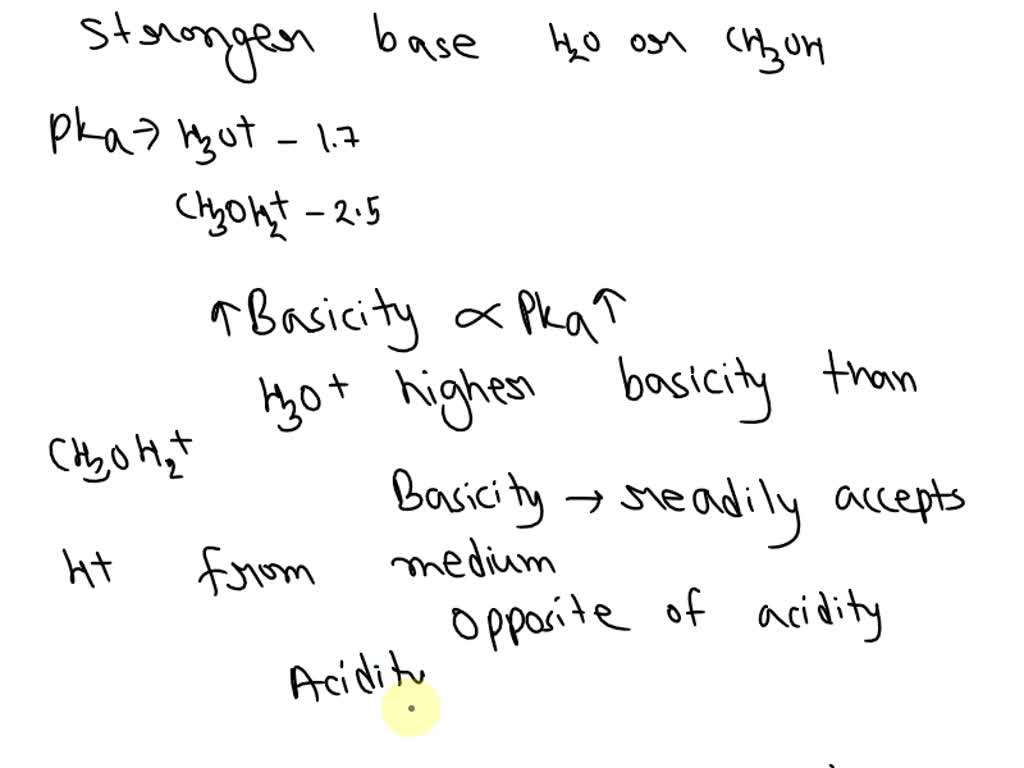 stronger base H2O or CH3OH
Pka → H3O+ - 1.7
CH3OH2+ - 2.5
↑ Basicity ∝ Pka ↑
H3O+ higher basicity than
CH3OH2+
Basicity → readily accepts
H+ from medium
opposite of acidity
Acidity